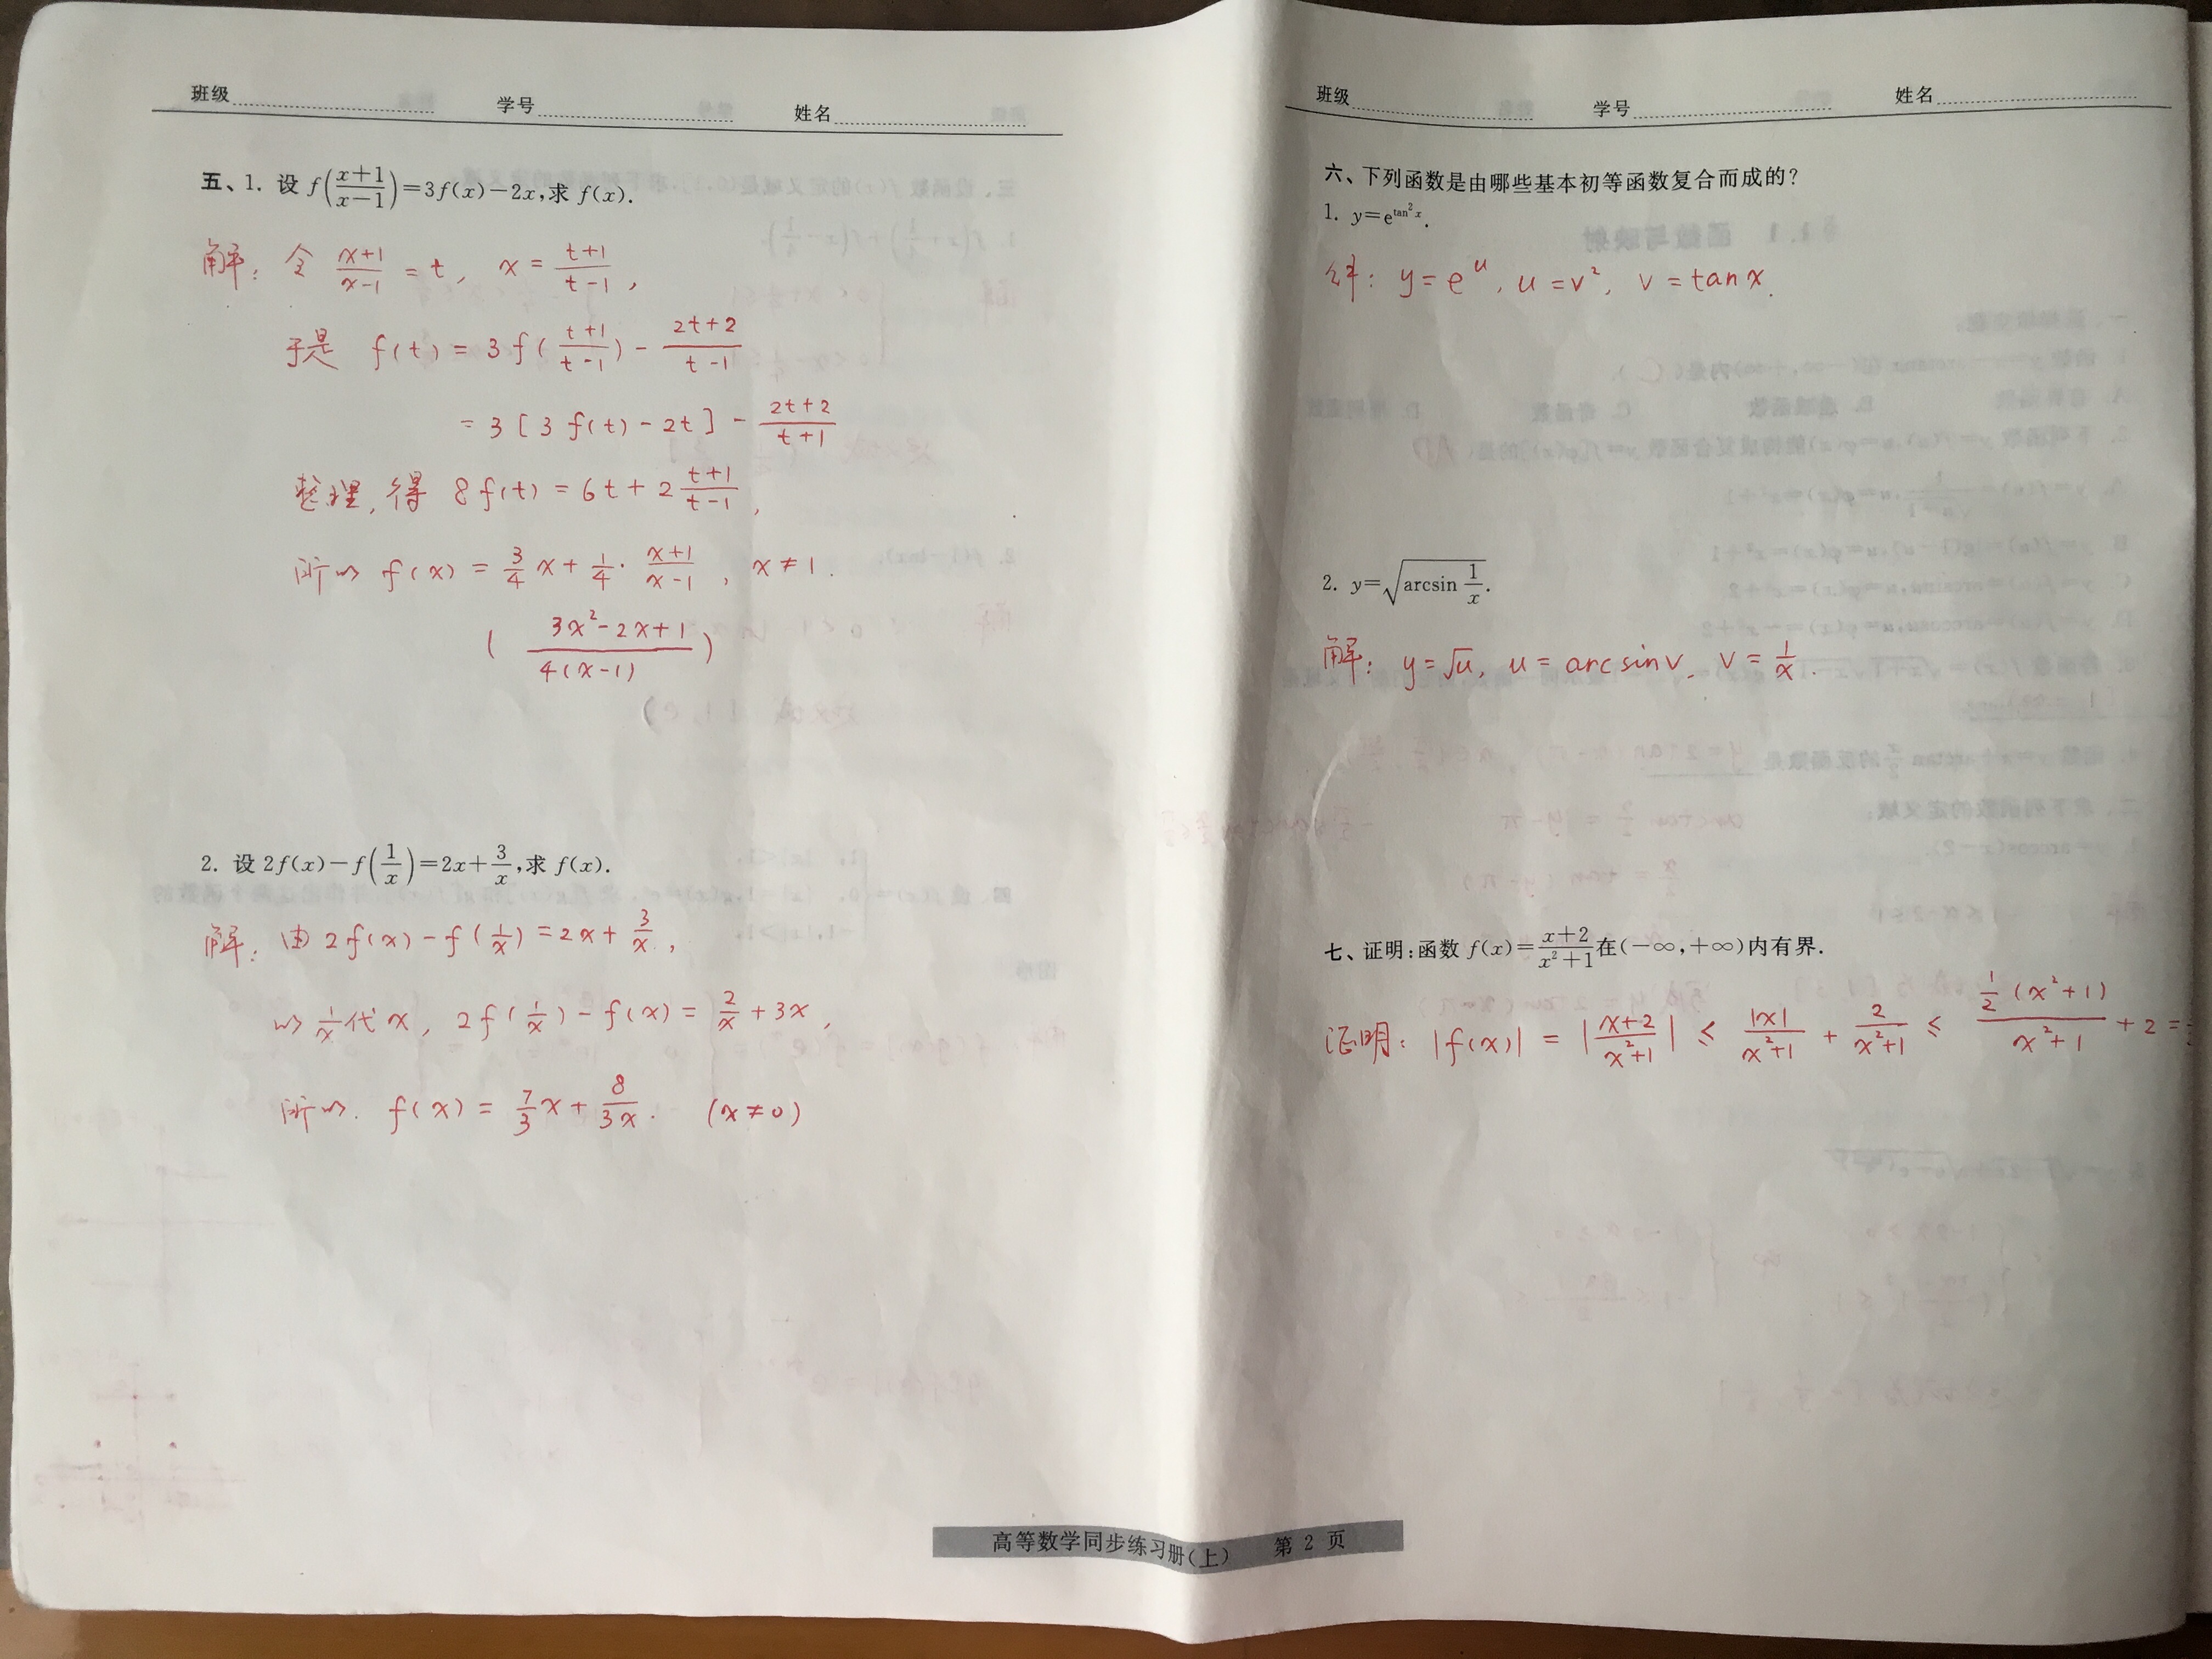 班级 学号 姓名
五、1. 设 f((x+1)/(x−1))=3f(x)−2x,求 f(x).
解: 令 (x+1)/(x−1) = t, x = (t+1)/(t−1),
于是 f(t) = 3f((t+1)/(t−1)) − (2t+2)/(t−1)
= 3[3f(t)−2t] − (2t+2)/(t+1)
整理,得 8f(t) = 6t+2 (t+1)/(t−1),
所以 f(x) = 3/4 x + 1/4 · (x+1)/(x−1), x≠1.
( (3x²−2x+1)/(4(x−1)) )
2. 设 2f(x)−f(1/x)=2x+3/x,求 f(x).
解: 由 2f(x)−f(1/x)=2x+3/x,
以 1/x 代 x, 2f(1/x)−f(x) = 2/x+3x,
所以. f(x) = 7/3 x + 8/(3x). (x≠0)
班级 学号 姓名
六、下列函数是由哪些基本初等函数复合而成的?
1. y=e^(tan²x).
解: y=e^u, u=v², v=tanx.
2. y=√(arcsin 1/x).
解: y=√u, u=arcsinv, v=1/x.
七、证明:函数 f(x)=(x+2)/(x²+1)在(−∞,+∞)内有界.
证明: |f(x)| = |(x+2)/(x²+1)| ≤ |x|/(x²+1) + 2/(x²+1) ≤ (1/2 (x²+1))/(x²+1) + 2 =
高等数学同步练习册(上) 第 2 页